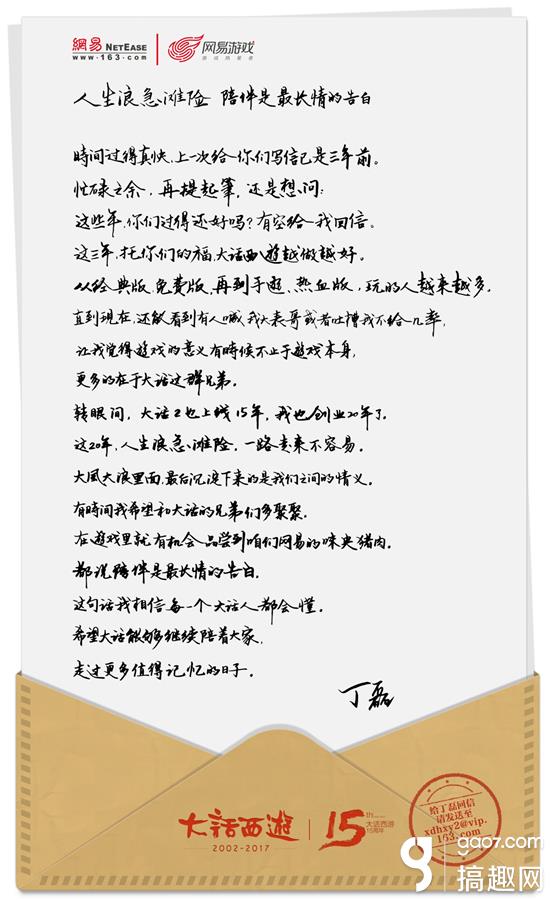 網易 NETEASE
www.163.com
网易游戏
游戏热爱者
人生浪急滩险 陪伴是最长情的告白
時间过得真快,上一次给你们写信已是三年前。
忙碌之余,再提起筆,还是想问:
这些年,你们过得还好吗?有空给我回信。
这三年,托你们的福,大话西遊越做越好。
从经典版、免费版,再到手遊、热血版,玩的人越来越多。
直到现在,还能看到有人喊我大表哥或者吐槽我不给几率,
让我觉得遊戏的意义有時候不止于遊戏本身,
更多的在于大话这群兄弟。
转眼间,大话2也上线15年,我也创业20年了。
这20年,人生浪急滩险,一路走来不容易。
大風大浪里面,最后沉淀下来的是我们之间的情义。
有時间我希望和大话的兄弟们多聚聚。
在遊戏里就有机会品尝到咱们网易的味央猪肉。
都说陪伴是最长情的告白,
这句话我相信每一个大话人都会懂。
希望大话能够继续陪着大家,
走过更多值得记忆的日子。
丁磊
大话西遊
2002-2017
15th
大话西游
15周年
给丁磊回信
请发送至
xdhxy2@vip.
163.com
gao7.com
搞趣网